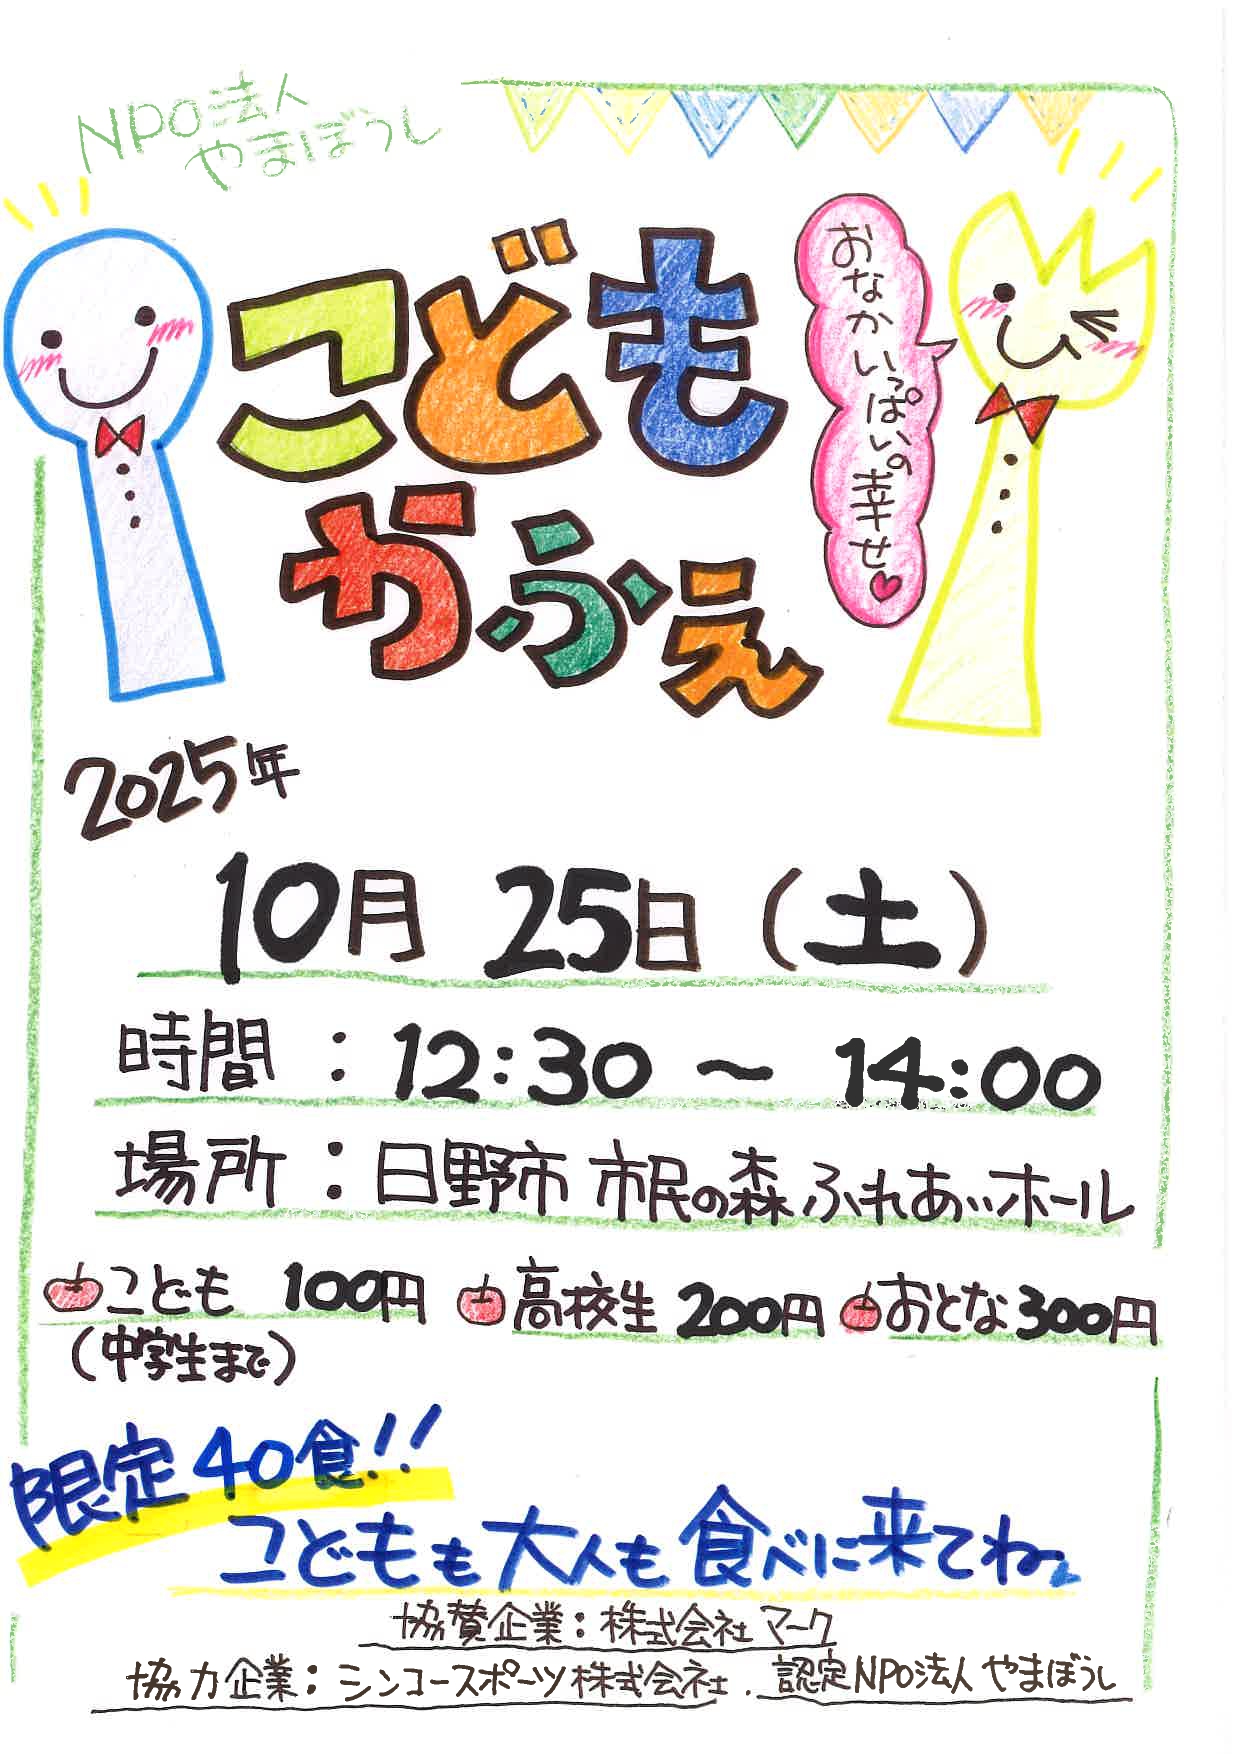 NPO法人
やまぼうし
こども
かふぇ
おなかいっぱいの幸せ
2025年
10月 25日（土）
時間：12:30～14:00
場所：日野市 市民の森ふれあいホール
こども 100円 高校生 200円 おとな 300円
（中学生まで）
限定40食!!
こどもも大人も食べに来てね
協賛企業：株式会社マーク
協力企業：シンコースポーツ株式会社．認定NPO法人やまぼうし